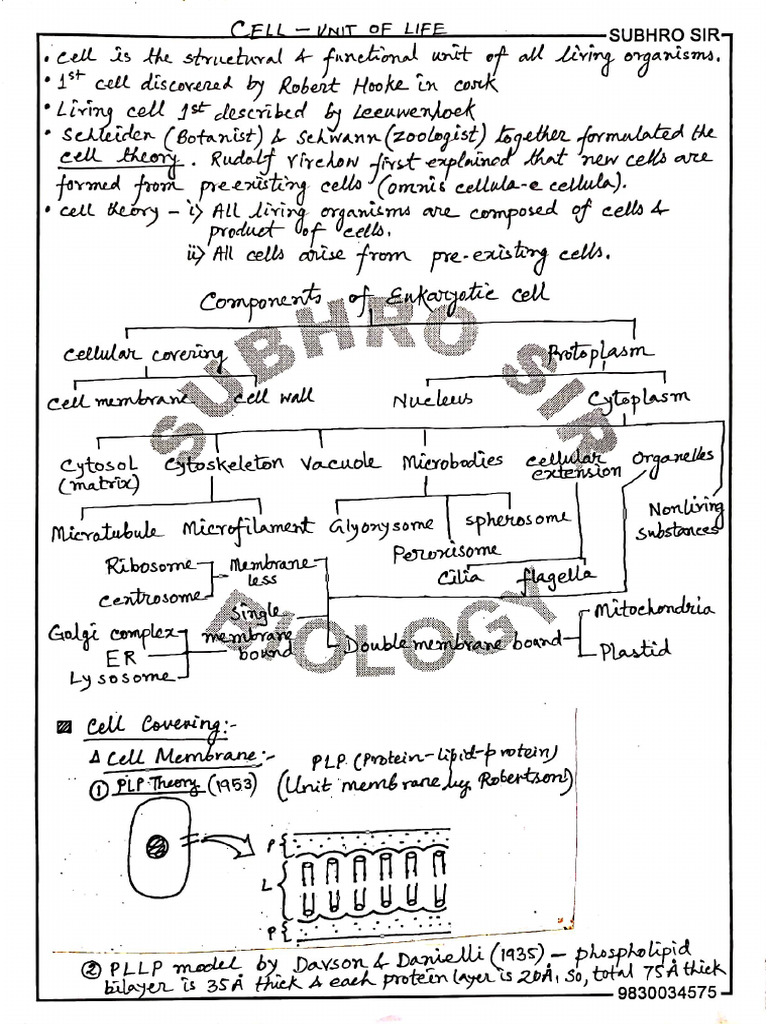 CELL - UNIT OF LIFE
SUBHRO SIR
• Cell is the structural & functional unit of all living organisms.
• 1st cell discovered by Robert Hooke in cork
• Living cell 1st described by Leeuwenhoek
• Schleiden (Botanist) & Schwann (zoologist) together formulated the
cell theory. Rudolf Virchow first explained that new cells are
formed from pre existing cells (omnis cellula-e cellula).
• cell theory - i) All living organisms are composed of cells &
product of cells.
ii) All cells arise from pre-existing cells.
Components of Eukaryotic cell
Cellular covering Protoplasm
Cell membrane Cell wall Nucleus Cytoplasm
Cytosol (matrix) Cytoskeleton Vacuole Microbodies Cellular extension Organelles
Nonliving substances
Microtubule Microfilament Glyonysome Spherosome
Peroxisome
Cilia flagella
Ribosome Membrane less
Centrosome
Single membrane bound
Golgi complex
ER
Lysosome
Double membrane bound Mitochondria
Plastid
SUBHRO SIR
BIOLOGY
Cell Covering:-
Δ Cell Membrane:- PLP (Protein-lipid-protein)
① PLP Theory (1953) (Unit membrane by Robertson)
P
L
P
② PLLP model by Davson & Danielli (1935) - phospholipid
bilayer is 35Å thick & each protein layer is 20Å. So, total 75Å thick
9830034575